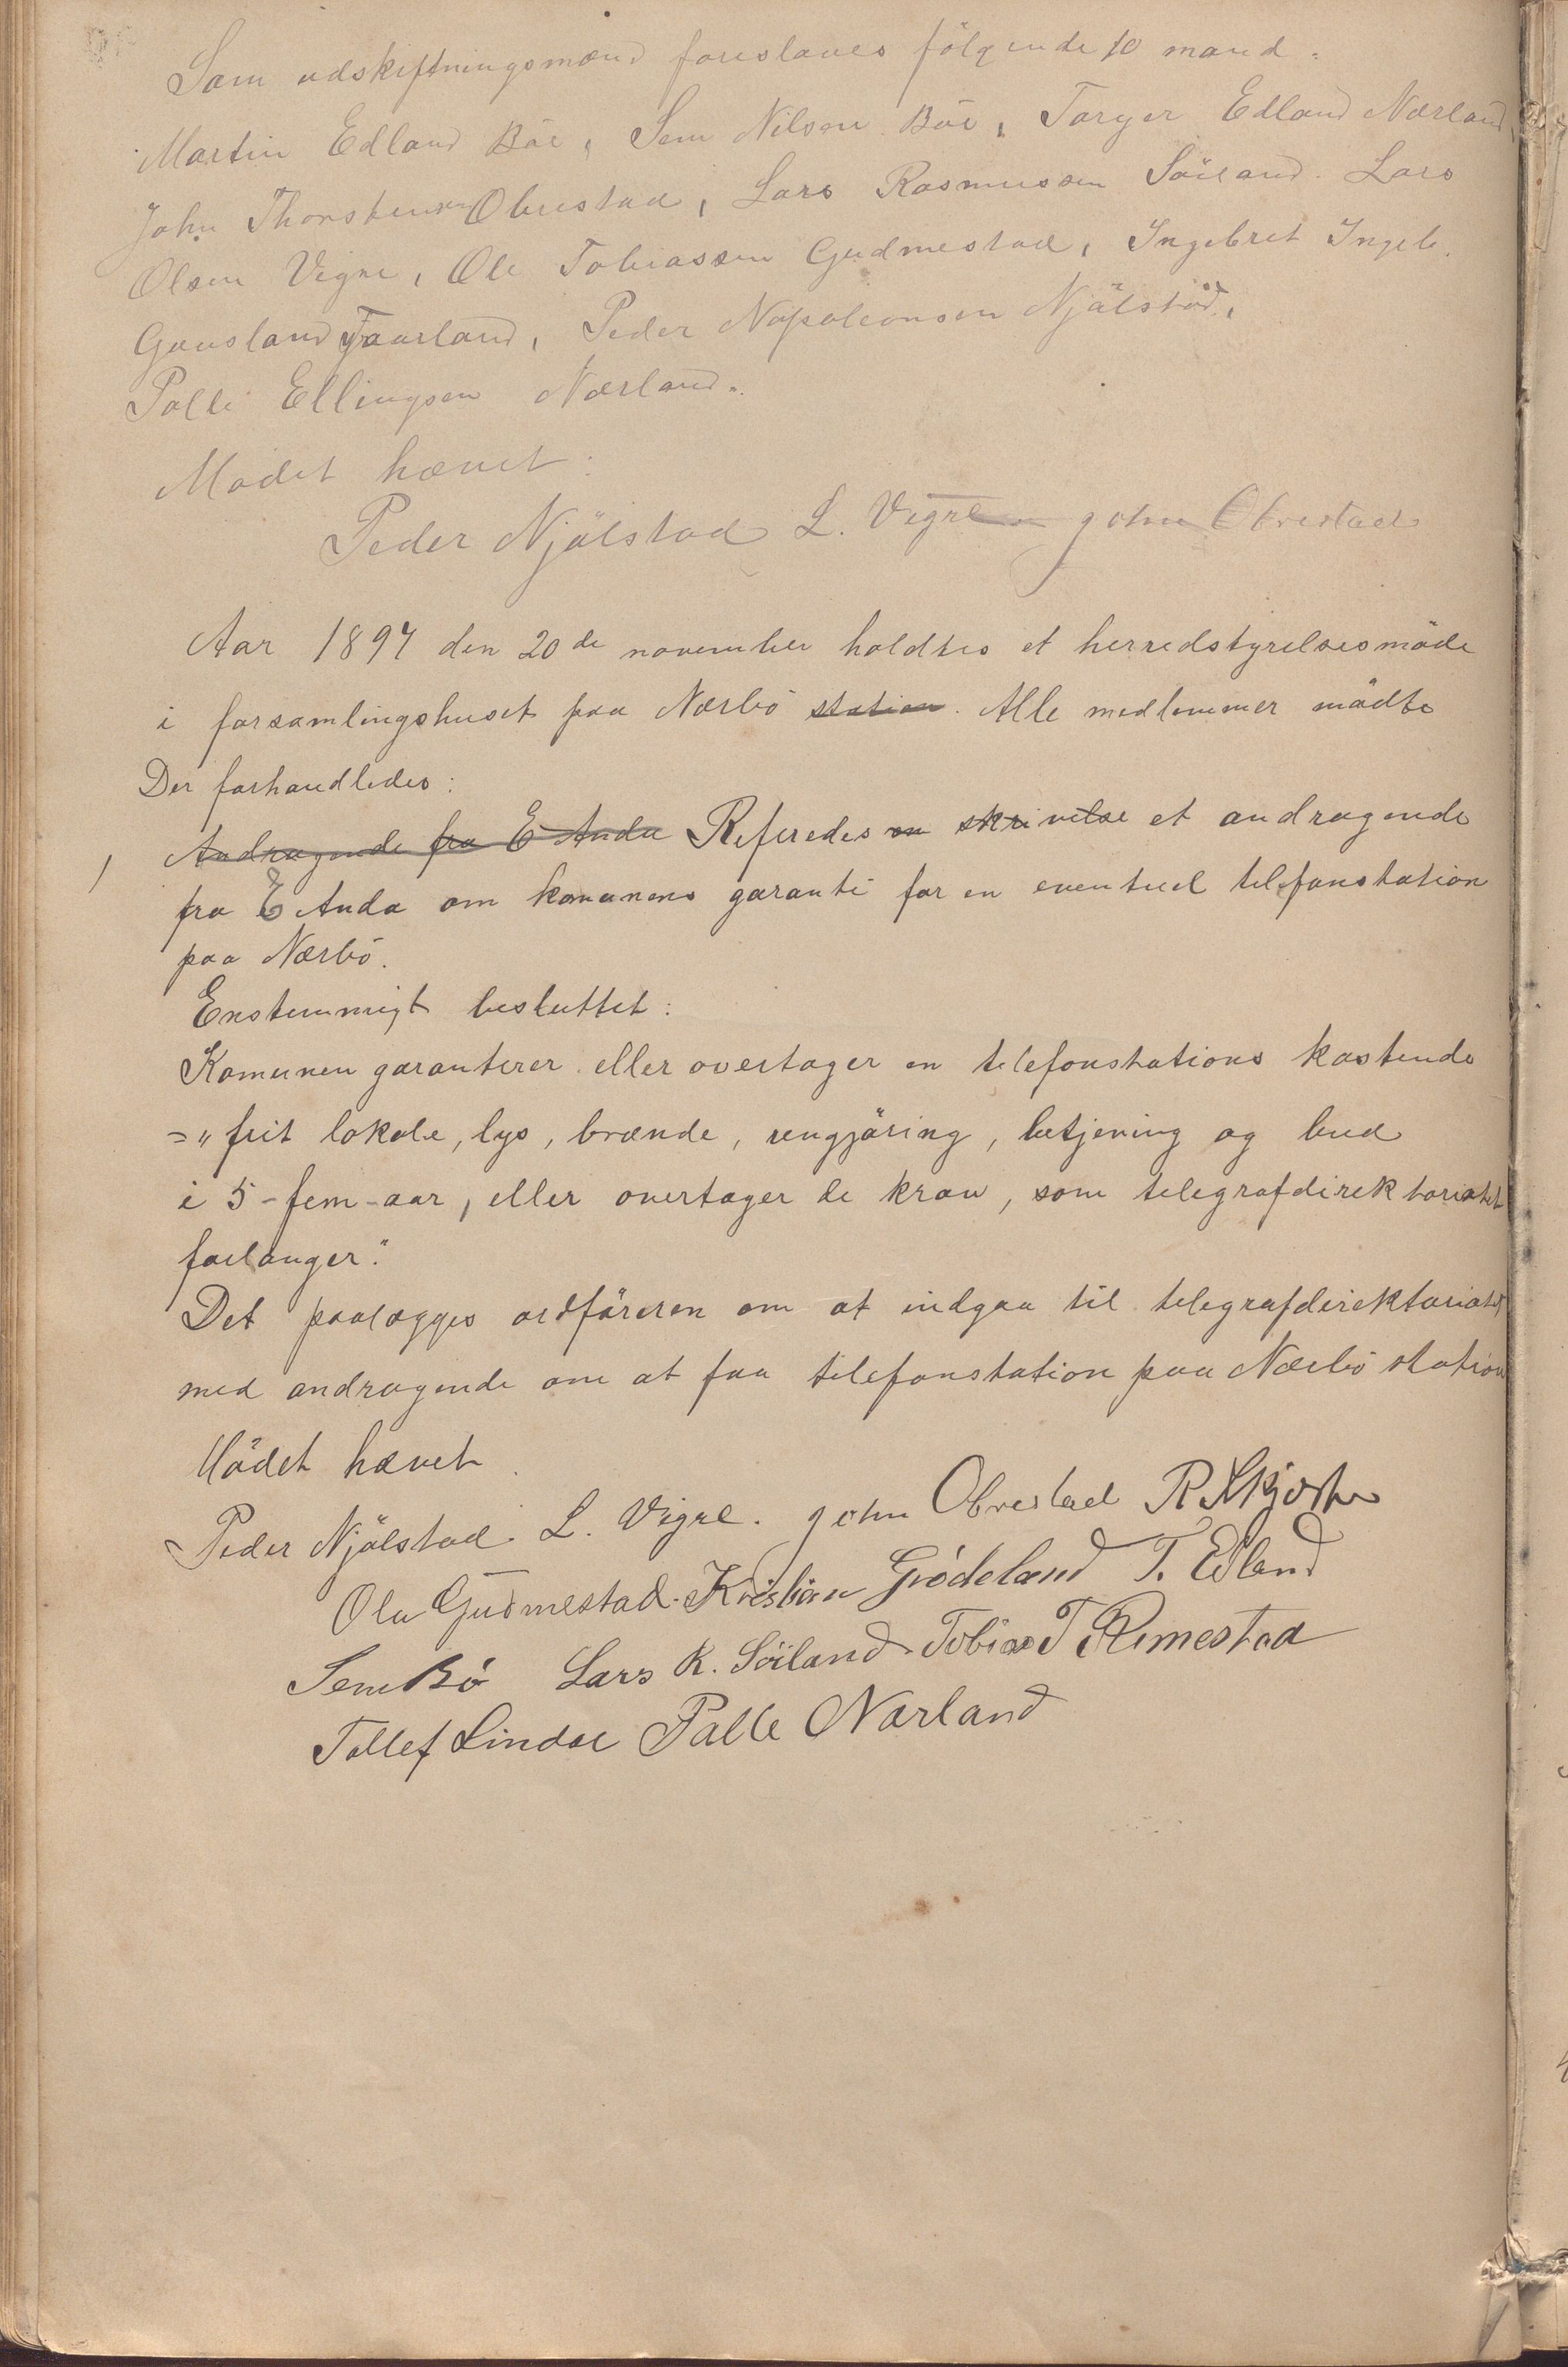 Som udskiftningsmænd foreslaaes følgende 10 mand:
Martin Edland Böe, Sem Nilsen Böe, Torger Edland Nærland,
John Thorstensen Obrestad, Lars Rasmussen Söiland. Lars
Olsen Vigre, Ole Tobiassen Gudmestad, Ingebret Ingeb.
Gausland Taarland, Peder Napoleonsen Njålstad,
Palle Ellingsen Nærland.
Mødet hævet:
Peder Njålstad L. Vigre John Obrestad
Aar 1897 den 20de november holdtes et herredstyrelsesmöde
i forsamlingshuset paa Nærbö station. Alle medlemmer mödte
Der forhandledes:
1 Andragende fra E Anda Referedes en skrivelse et andragende
fra E Anda om komunens garanti for en eventuel telefonstation
paa Nærbö.
Enstemmigt besluttet:
Komunen garanterer eller overtager en telefonstations kostende
=„frit lokale, lys, brænde, rengjöring, betjening og bud
i 5-fem-aar, eller overtager de krav, som telegrafdirektoriatet
forlanger."
Det paalægges ordföreren om at indgaa til telegrafdirektoriatet
med andragende om at faa telefonstation paa Nærbö station
Mödet hævet
Peder Njålstad. L. Vigre. John Obrestad R. Skjæ
Ole Gudmestad. Kristian Grödeland T. Edland
Sem Bö Lars R. Söiland Tobias T Rimestad
Tollef Lindal Palle Nærland